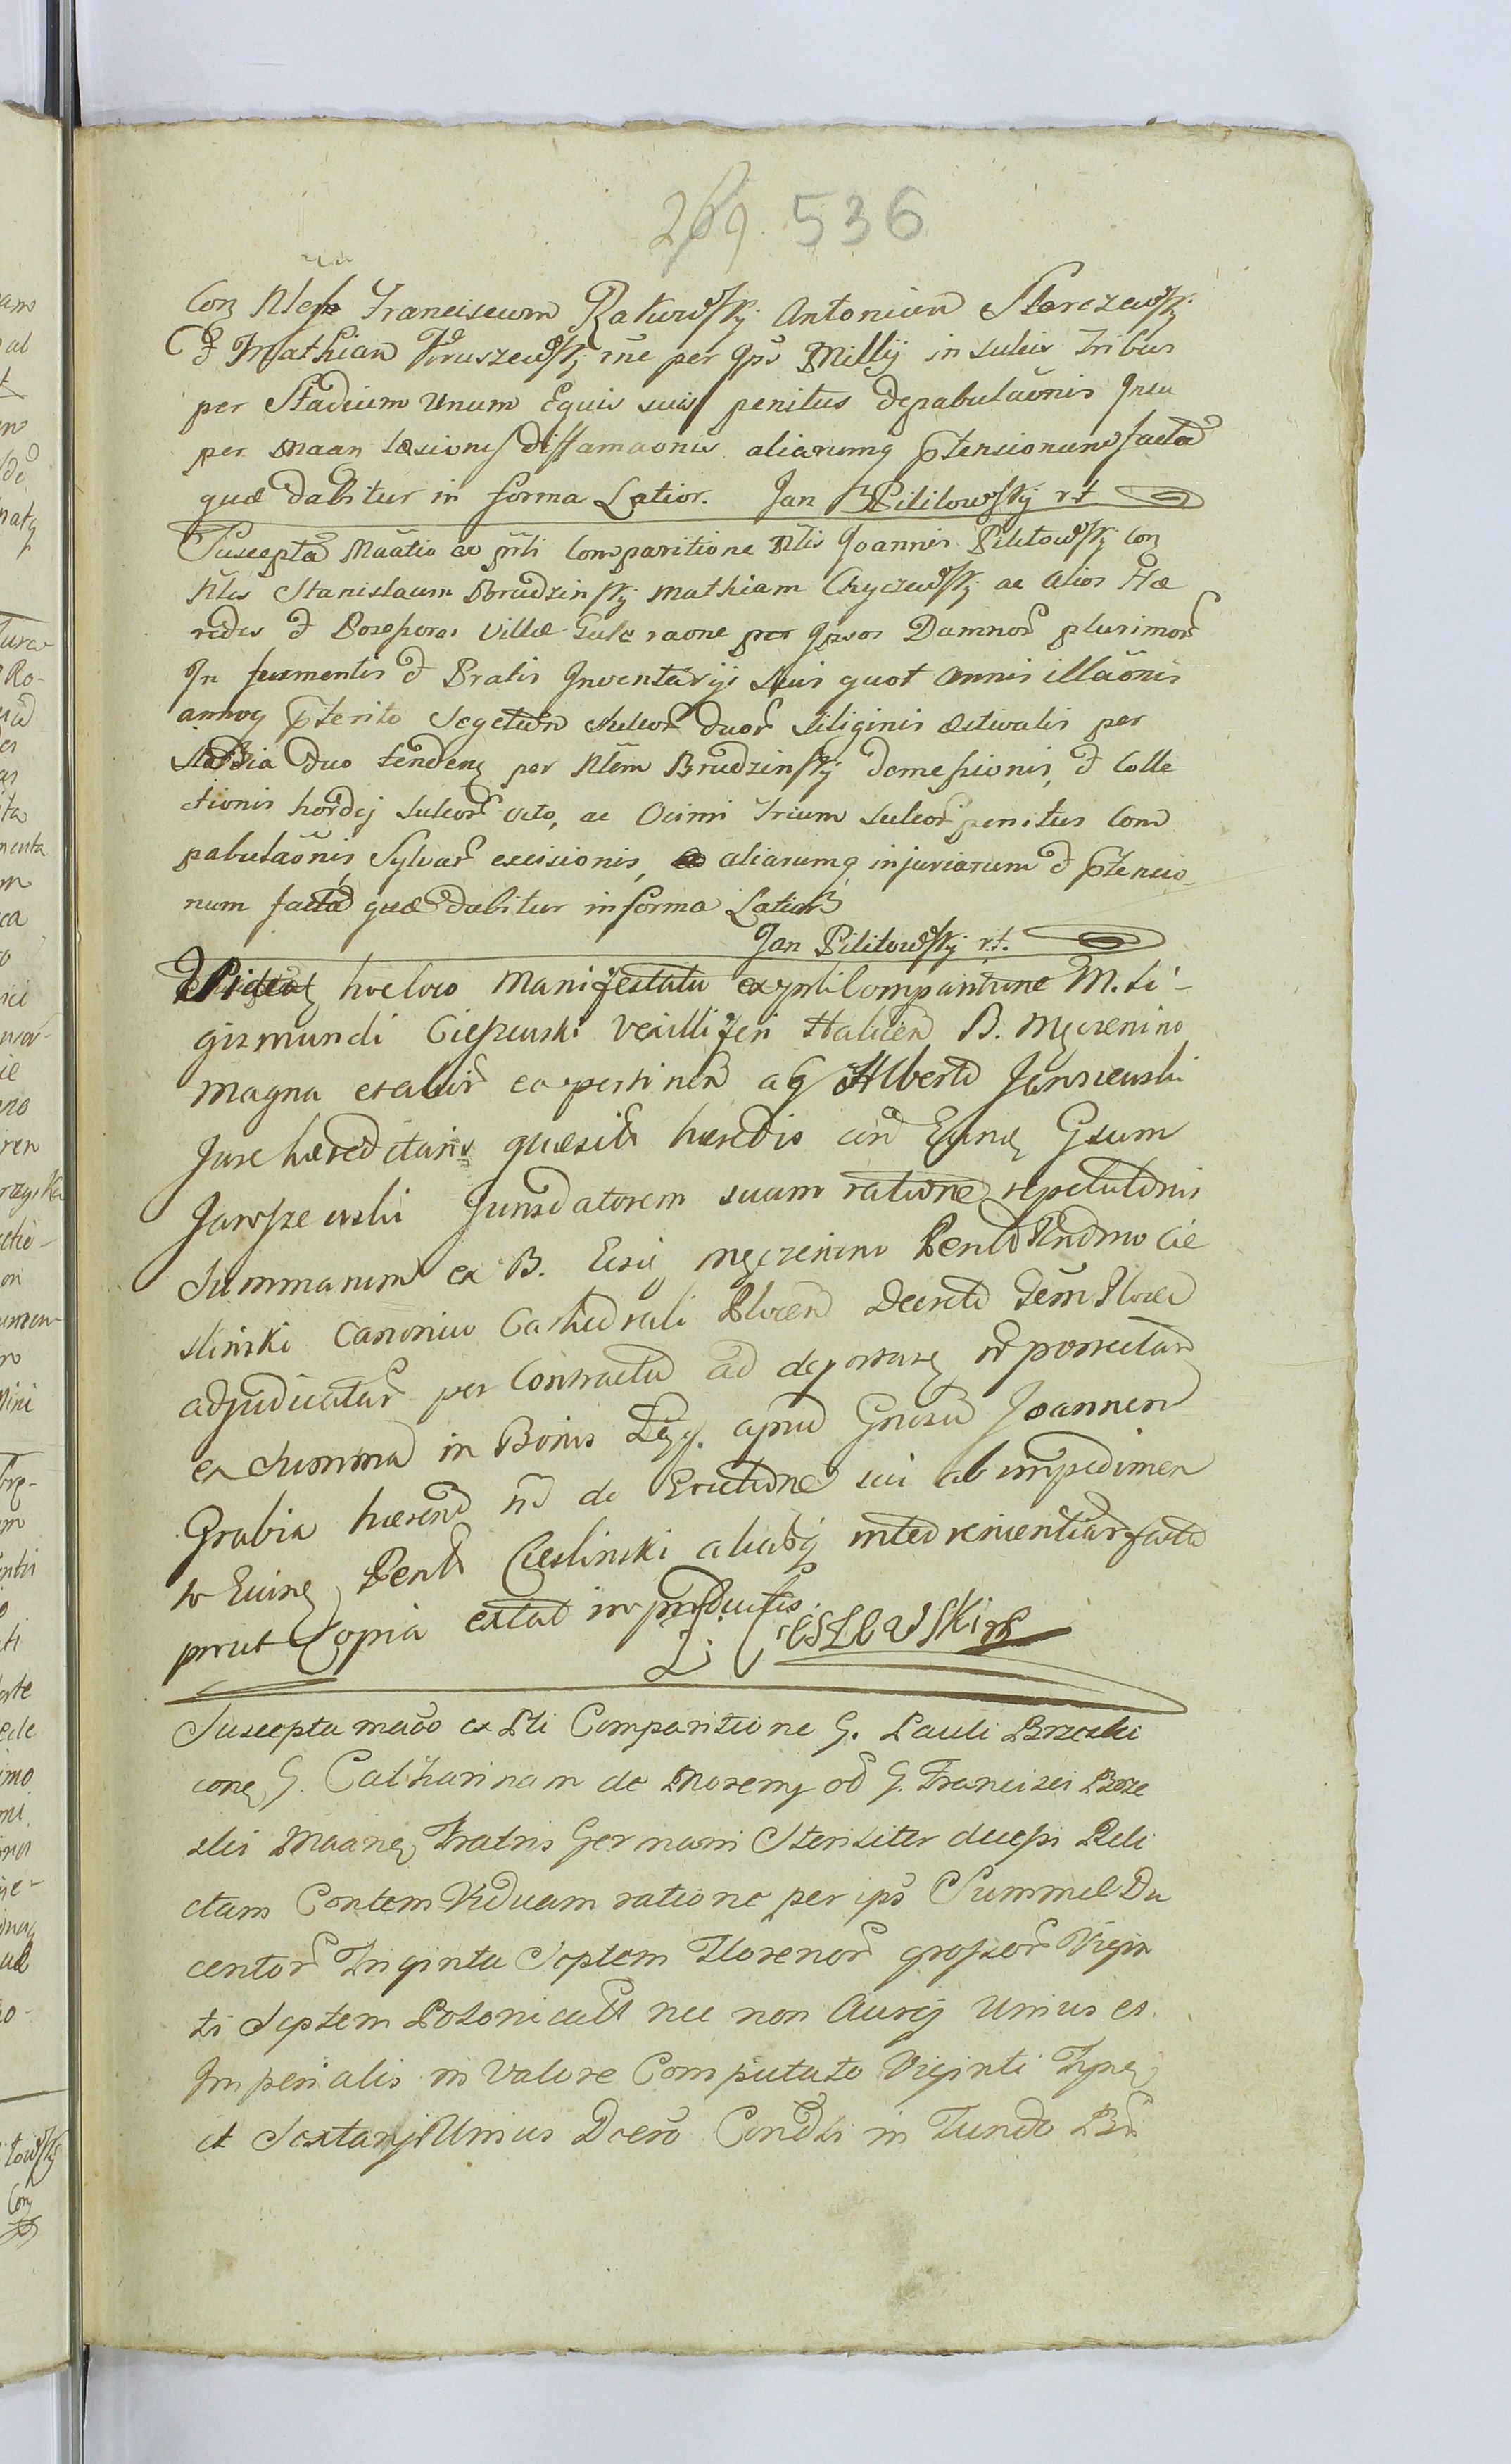 269. 536
Con Nles Franciscum Rakowsky Antonium Skarczewsky
& Mathian Kruszewsky rne per Ips Millij in sulcis tribus
per Stadium Unum Equis suis penitus depabulaonis Insu
per Maan læsionis diffamaonis aliarumq ptensionum facta
quæ dabitur in forma Latior. Jan Pilitowsky rt
Suscepta Maatio ac pnli Comparitione Nlis Joannis Pilitowsky Con
Nles Stanislaum Brudzinsky Mathiam Chyczewsky ac Alios Hæ
redes & Possessores Villæ raone per Ipsos Damnor plurimor
In frumentis & Pratis Inventarijs suis quot Annis illaonis
annoq pterito Segetum Sulcor duor Siliginis æstivalis per
Stadia duo tenden per Nlem Brudzinsky demessionis, & Colle
ctionis hordej Sulcor octo, ac Ocimi trium Sulcor penitus Com
pabulaonis, Sylvar excisionis, aliarumq injuriarum & ptensio
num facta quæ dabitur in forma Latiori
Jan Pilitowsky rt.
hocloco Manifestatio ex pnli Comparitione M. Si-
gismundi Cieszewski Vexilliferi Halicen B. Myczenino
magna et aliis eo pertinen a G Alberto Jarszewski
Jure hæreditario quæsiti hæredis con Eund Gsum
Jarszewski Jurisdatorem suum ratione repetitionis
Summarum ex B. Eisd Myczenino Perill Rndmo Cie
slinski Canonico Cathedrali Plocen Decreto Plocen
adjudicatar per Contractum ad deportare porrectam
ex Summa in Bonis apud Gnosum Joannem
Grabia hæren nd de Evictione sui ab impedimen
to Perill Cieslinski aliasq facta
prout Copia extat in productis.
Z. Cieszewski
Suscepta maao ex Pli Comparitione G. Pauli Brzeski
cone G. Catharinam de Moremy od G. Francisci Brze
ski Maane Fratris Germani Steriliter decessi Reli
ctam Contem Viduam ratione per ips Summæ Du
centor Triginta Septem Florenor grossor Vigin
ti Septem Polonicali nec non Aurej Unius et
Imperialis in Valore Computato Viginti Tynf
et Sextarij Unius Conditi in Fundo